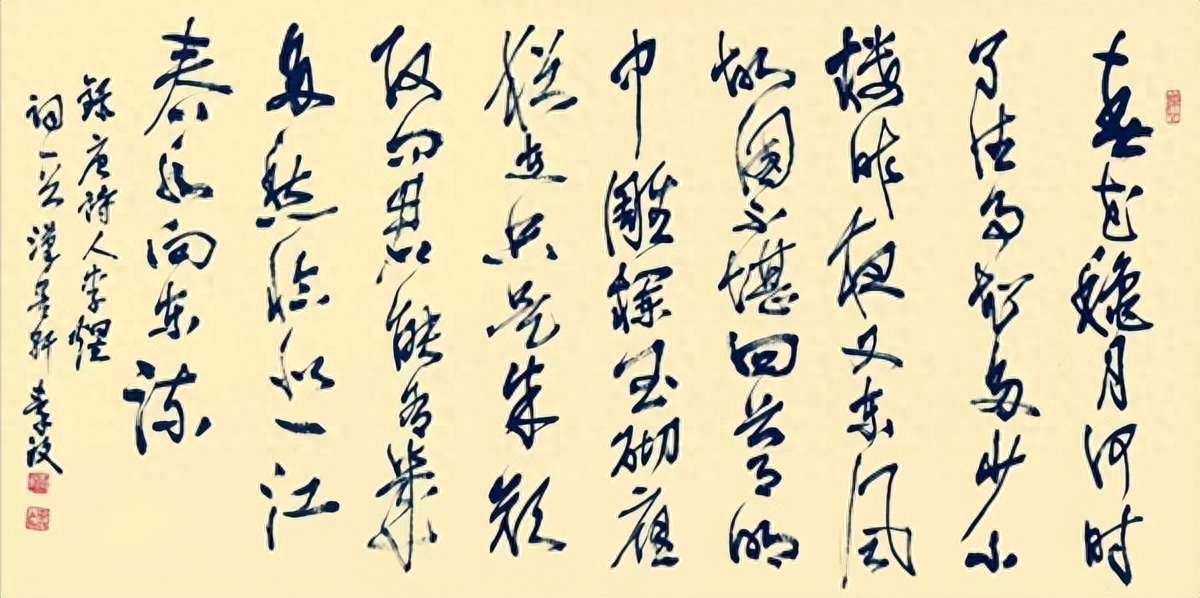 春花秋月何时
了往事知多少小
楼昨夜又东风
故国不堪回首明
中雕栏玉砌应
犹在只是朱颜
改问君能有几
多愁恰似一江
春水向东流
录唐诗人李煜
词一首 漢墨轩